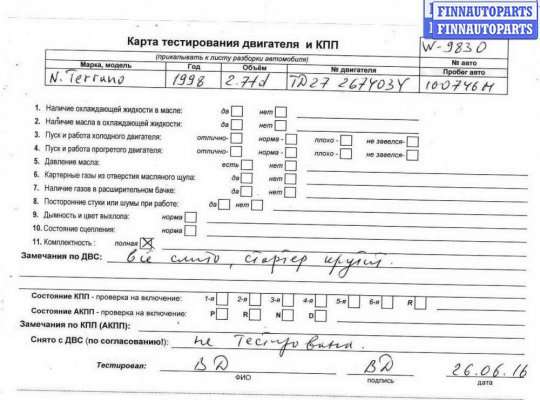 FINNAUTOPARTS
FINNAUTOPARTS
Карта тестирования двигателя и КПП
W-9830
(прикалывать к листу разборки автомобиля)
№ авто
Марка, модель Год Объём № двигателя Пробег авто
N. Terrano 1998 2.7td TD27 267403Y 100746м
1. Наличие охлаждающей жидкости в масле: да нет
2. Наличие масла в охлаждающей жидкости: да нет
3. Пуск и работа холодного двигателя: отлично- норма - плохо - не завелся-
4. Пуск и работа прогретого двигателя: отлично- норма - плохо - не завелся-
5. Давление масла: есть нет
6. Картерные газы из отверстия масляного щупа: да нет
7. Наличие газов в расширительном бачке: да нет
8. Посторонние стуки или шумы при работе: да нет
9. Дымность и цвет выхлопа: норма
10. Состояние сцепления: норма
11. Комплектность : полная
Замечания по ДВС: всё слито, стартер крутит.
Состояние КПП - проверка на включение: 1-я 2-я 3-я 4-я 5-я 6-я R
Состояние АКПП - проверка на включение: P R N D
Замечания по КПП (АКПП):
Снято с ДВС (по согласованию!): не тестирована.
Тестировал: ВД ВД 26.06.16
ФИО подпись дата